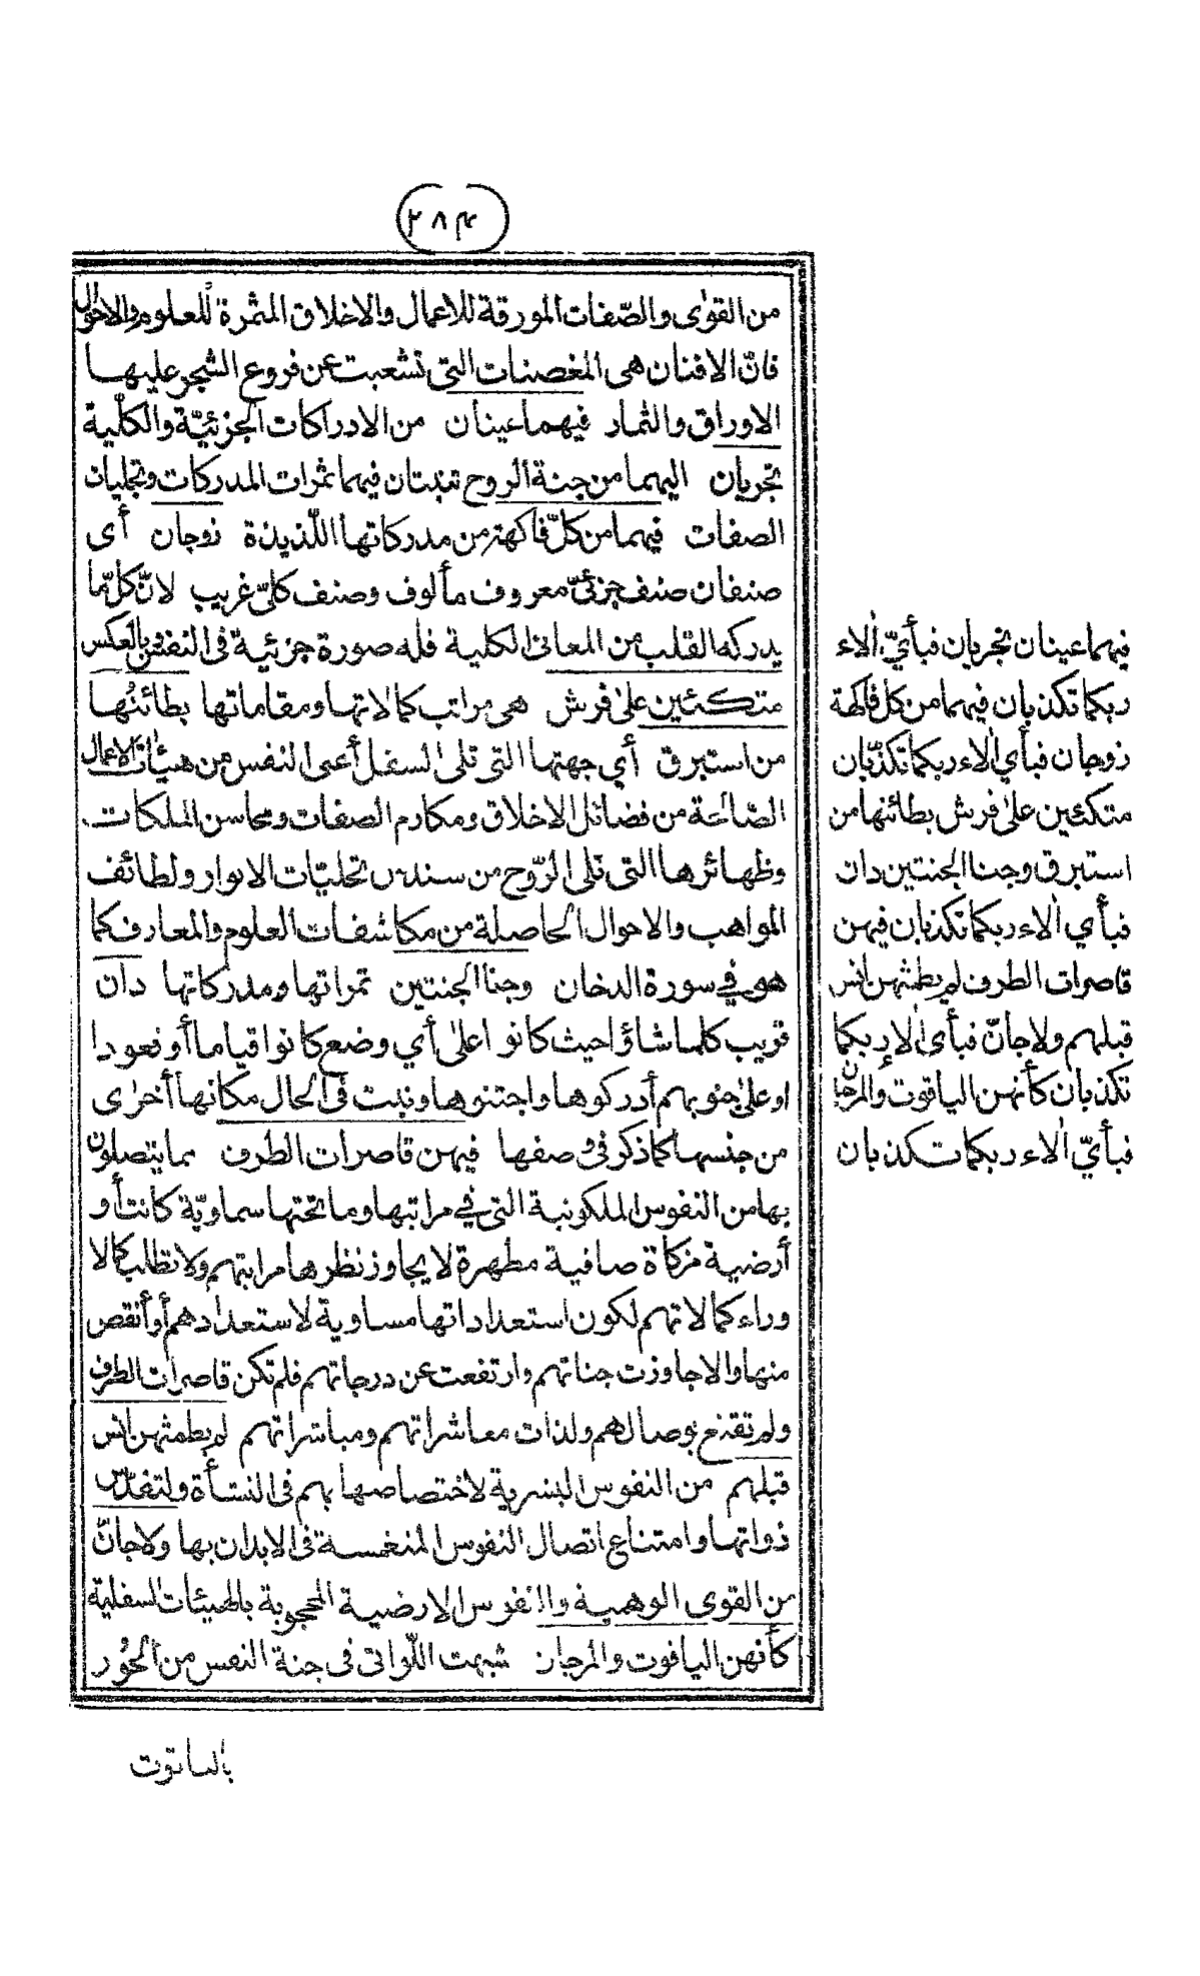 (٢٨٤)
من القوٰى والصّفات المورقة للاعمال والاخلاق المثمرة للعلوم والاحوال
فانّ الافنان هى المغصنات التى تشعبت عن فروع الشجر عليهــا
الاوراق والثمار فيهما عينان من الادراكات الجزئيّة والكلّية
تجريان اليهما من جنة الروح تنبتان فيهما ثمرات المدركات وتجليات
الصفات فيهما من كلّ فاكهة من مدركاتها اللّذيذة زوجان أى
صنفان صنف جزئىّ معروف مألوف وصنف كلىّ غريب لانّ كلّ ما
يدركه القلب من المعانى الكلية فله صورة جزئية فى النفس وبالعكس
متكئين علىٰ فرش هى مراتب كمالاتها ومقاماتها بطائنُها
من استبرق أي جهتها التى تلى السفل أعنى النفس من هيئات الاعمال
الصّالحة من فضائل الاخلاق ومكارم الصفات ومحاسن الملكات
وظهائرها التى تلى الرّوح من سندس تجليّات الانوار ولطائف
المواهب والاحوال الحاصلة من مكاشفات العلوم والمعارف كما
هو في سورة الدخان وجنا الجنتين ثمراتها ومدركاتها دان
قريب كلما شاؤا حيث كانوا علىٰ أي وضع كانوا قياما أو قعودا
او علىٰ جنوبهم أدركوها واجتنوها ونبت فى الحال مكانها أخرٰى
من جنسها كما ذكر فى وصفها فيهن قاصرات الطرف مما يتصلون
بها من النفوس الملكوتية التى في مراتبها وما تحتها سماويّة كانت أو
أرضية مزكاة صافية مطهرة لا يجاوز نظرها مراتبهم ولا تطلب كمالا
وراء كمالاتهم لكون استعداداتها مساوية لاستعدادهم أو أنقص
منها والا جاوزت جناتهم وارتفعت عن درجاتهم فلم تكن قاصرات الطرف
ولم تقنع بوصالهم ولذات معاشراتهم ومباشراتهم لم يطمثهن انس
قبلهم من النفوس البشرية لاختصاصها بهم فى النشأة ولتقدّس
ذواتها وامتناع اتصال النفوس المنغمسة فى الابدان بها ولا جانّ
من القوى الوهمية والنفوس الارضية المحجوبة بالهيئات السفلية
كأنهن الياقوت والمرجان شبهت اللّواتى فى جنة النفس من الحُور
بالياقوت
فيهما عينان تجريان فبأيّ اٰلاء
ربكما تكذبان فيهما من كل فاكهة
زوجان فبأي اٰلاء ربكما تكذّبان
متكئين علىٰ فرش بطائنها من
استبرق وجنا الجنتين دان
فبأي اٰلاء ربكما تكذبان فيهن
قاصرات الطرف لم يطمثهن انس
قبلهم ولا جانّ فبأى اٰلاء ربكما
تكذبان كأنهن الياقوت والمرجان
فبأيّ اٰلاء ربكما تكذبان